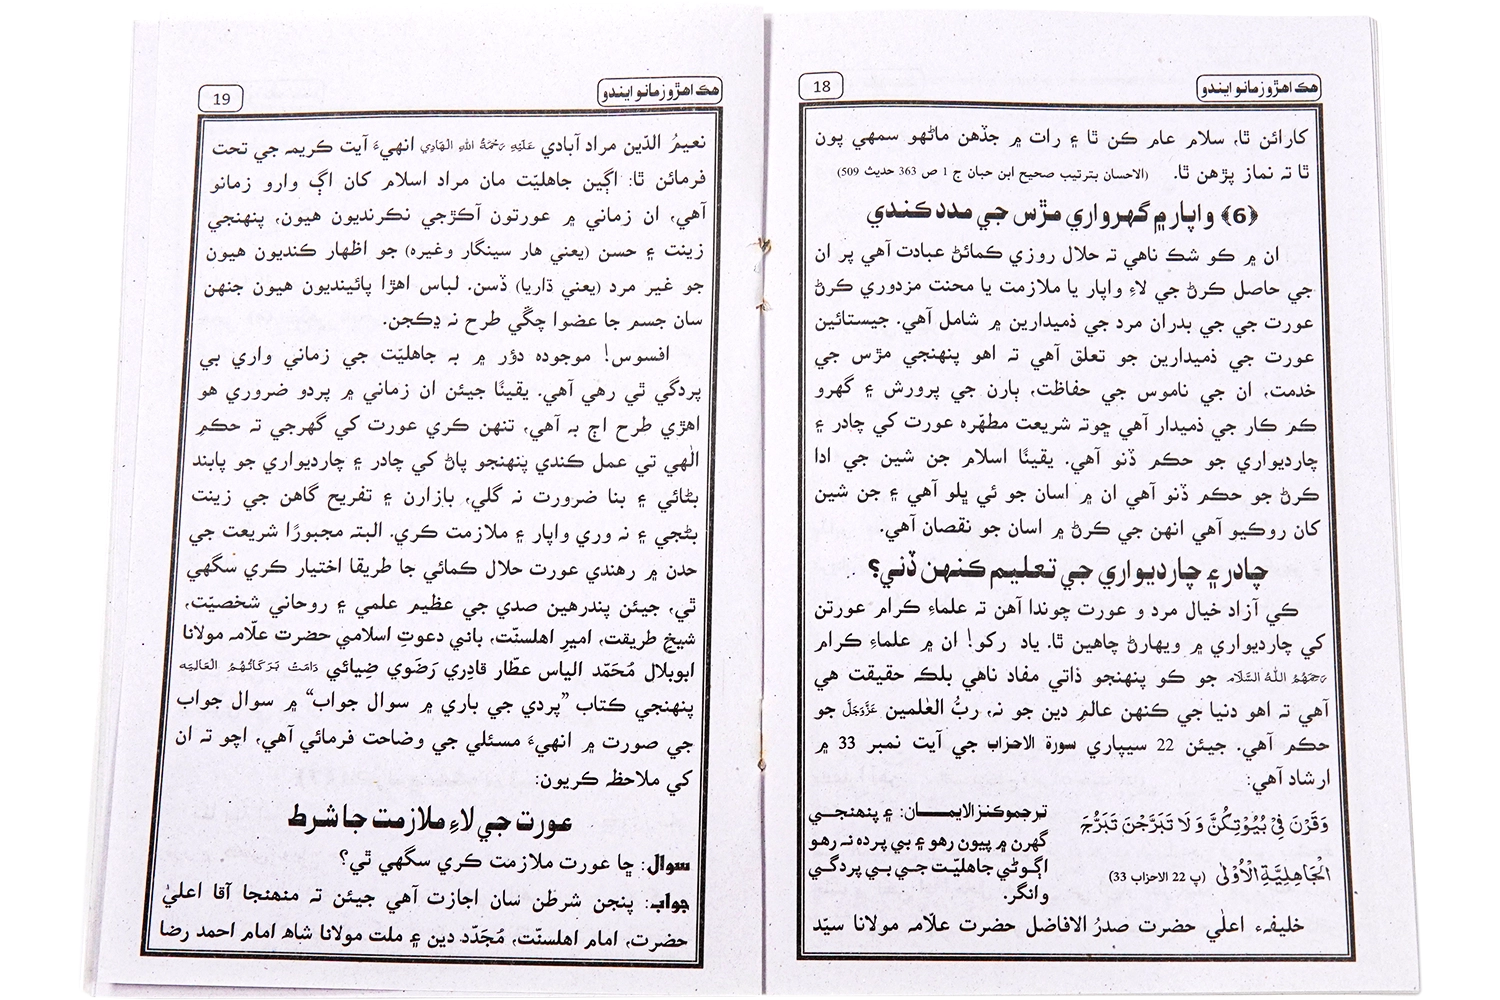 هڪ اهڙو زمانو ايندو
18
کارائن ٿا، سلام عام ڪن ٿا ۽ رات ۾ جڏهن ماڻهو سمهي پون
ٿا تہ نماز پڙهن ٿا. (الاحسان بترتيب صحيح ابن حبان ج 1 ص 363 حديث 509)
﴿6﴾ واپار ۾ گهرواري مڙس جي مدد ڪندي
ان ۾ ڪو شڪ ناهي تہ حلال روزي ڪمائڻ عبادت آهي پر ان
جي حاصل ڪرڻ جي لاءِ واپار يا ملازمت يا محنت مزدوري ڪرڻ
عورت جي جي بدران مرد جي ذميدارين ۾ شامل آهي. جيستائين
عورت جي ذميدارين جو تعلق آهي تہ اهو پنهنجي مڙس جي
خدمت، ان جي ناموس جي حفاظت، ٻارن جي پرورش ۽ گهرو
ڪم ڪار جي ذميدار آهي ڇوتہ شريعت مطهّره عورت کي چادر ۽
چارديواري جو حڪم ڏنو آهي. يقينًا اسلام جن شين جي ادا
ڪرڻ جو حڪم ڏنو آهي ان ۾ اسان جو ئي ڀلو آهي ۽ جن شين
کان روڪيو آهي انهن جي ڪرڻ ۾ اسان جو نقصان آهي.
چادر ۽ چارديواري جي تعليم ڪنهن ڏني؟
ڪي آزاد خيال مرد و عورت چوندا آهن تہ علماءِ ڪرام عورتن
کي چارديواري ۾ ويهارڻ چاهين ٿا. ياد رکو! ان ۾ علماءِ ڪرام
رَحِمَهُمُ اللهُ السَّلَام جو ڪو پنهنجو ذاتي مفاد ناهي بلڪ حقيقت هي
آهي تہ اهو دنيا جي ڪنهن عالمِ دين جو نہ، ربُّ العٰلمين عَزَّوَجَلَّ جو
حڪم آهي. جيئن 22 سيپاري سورة الاحزاب جي آيت نمبر 33 ۾
ارشاد آهي:
وَقَرْنَ فِيْ بُيُوْتِكُنَّ وَ لَا تَبَرَّجْنَ تَبَرُّجَ
الْجَاهِلِيَّةِ الْاُوْلٰى (پ 22 الاحزاب 33)
ترجموڪنز الايمان: ۽ پنهنجي
گهرن ۾ پيون رهو ۽ بي پرده نہ رهو
اڳوڻي جاهليّت جي بي پردگي
وانگر.
خليفہء اعلٰي حضرت صدرُ الافاضل حضرت علّامہ مولانا سيّد
هڪ اهڙو زمانو ايندو
19
نعيمُ الدّين مراد آبادي عَلَيْهِ رَحْمَةُ اللهِ الْهَادِي انهيءَ آيت ڪريمہ جي تحت
فرمائن ٿا: اڳين جاهليّت مان مراد اسلام کان اڳ وارو زمانو
آهي، ان زماني ۾ عورتون آڪڙجي نڪرنديون هيون، پنهنجي
زينت ۽ حسن (يعني هار سينگار وغيره) جو اظهار ڪنديون هيون
جو غير مرد (يعني ڌاريا) ڏسن. لباس اهڙا پائينديون هيون جنهن
سان جسم جا عضوا چڱي طرح نہ ڍڪجن.
افسوس! موجوده دؤر ۾ بہ جاهليّت جي زماني واري بي
پردگي ٿي رهي آهي. يقينًا جيئن ان زماني ۾ پردو ضروري هو
اهڙي طرح اڄ بہ آهي، تنهن ڪري عورت کي گهرجي تہ حڪمِ
الٰهي تي عمل ڪندي پنهنجو پاڻ کي چادر ۽ چارديواري جو پابند
بڻائي ۽ بنا ضرورت نہ گلي، بازارن ۽ تفريح گاهن جي زينت
بڻجي ۽ نہ وري واپار ۽ ملازمت ڪري. البتہ مجبورًا شريعت جي
حدن ۾ رهندي عورت حلال ڪمائي جا طريقا اختيار ڪري سگهي
ٿي، جيئن پندرهين صدي جي عظيم علمي ۽ روحاني شخصيّت،
شيخِ طريقت، اميرِ اهلسنّت، باني دعوتِ اسلامي حضرت علّامہ مولانا
ابوبلال مُحَمّد الياس عطّار قادِري رَضَوي ضِيائي دَامَتْ بَرَكَاتُهُمُ الْعَالِيَه
پنهنجي ڪتاب ”پردي جي باري ۾ سوال جواب“ ۾ سوال جواب
جي صورت ۾ انهيءَ مسئلي جي وضاحت فرمائي آهي، اچو تہ ان
کي ملاحظ ڪريون:
عورت جي لاءِ ملازمت جا شرط
سوال: ڇا عورت ملازمت ڪري سگهي ٿي؟
جواب: پنجن شرطن سان اجازت آهي جيئن تہ منهنجا آقا اعليٰ
حضرت، امام اهلسنّت، مُجَدّد دين ۽ ملت مولانا شاھ امام احمد رضا